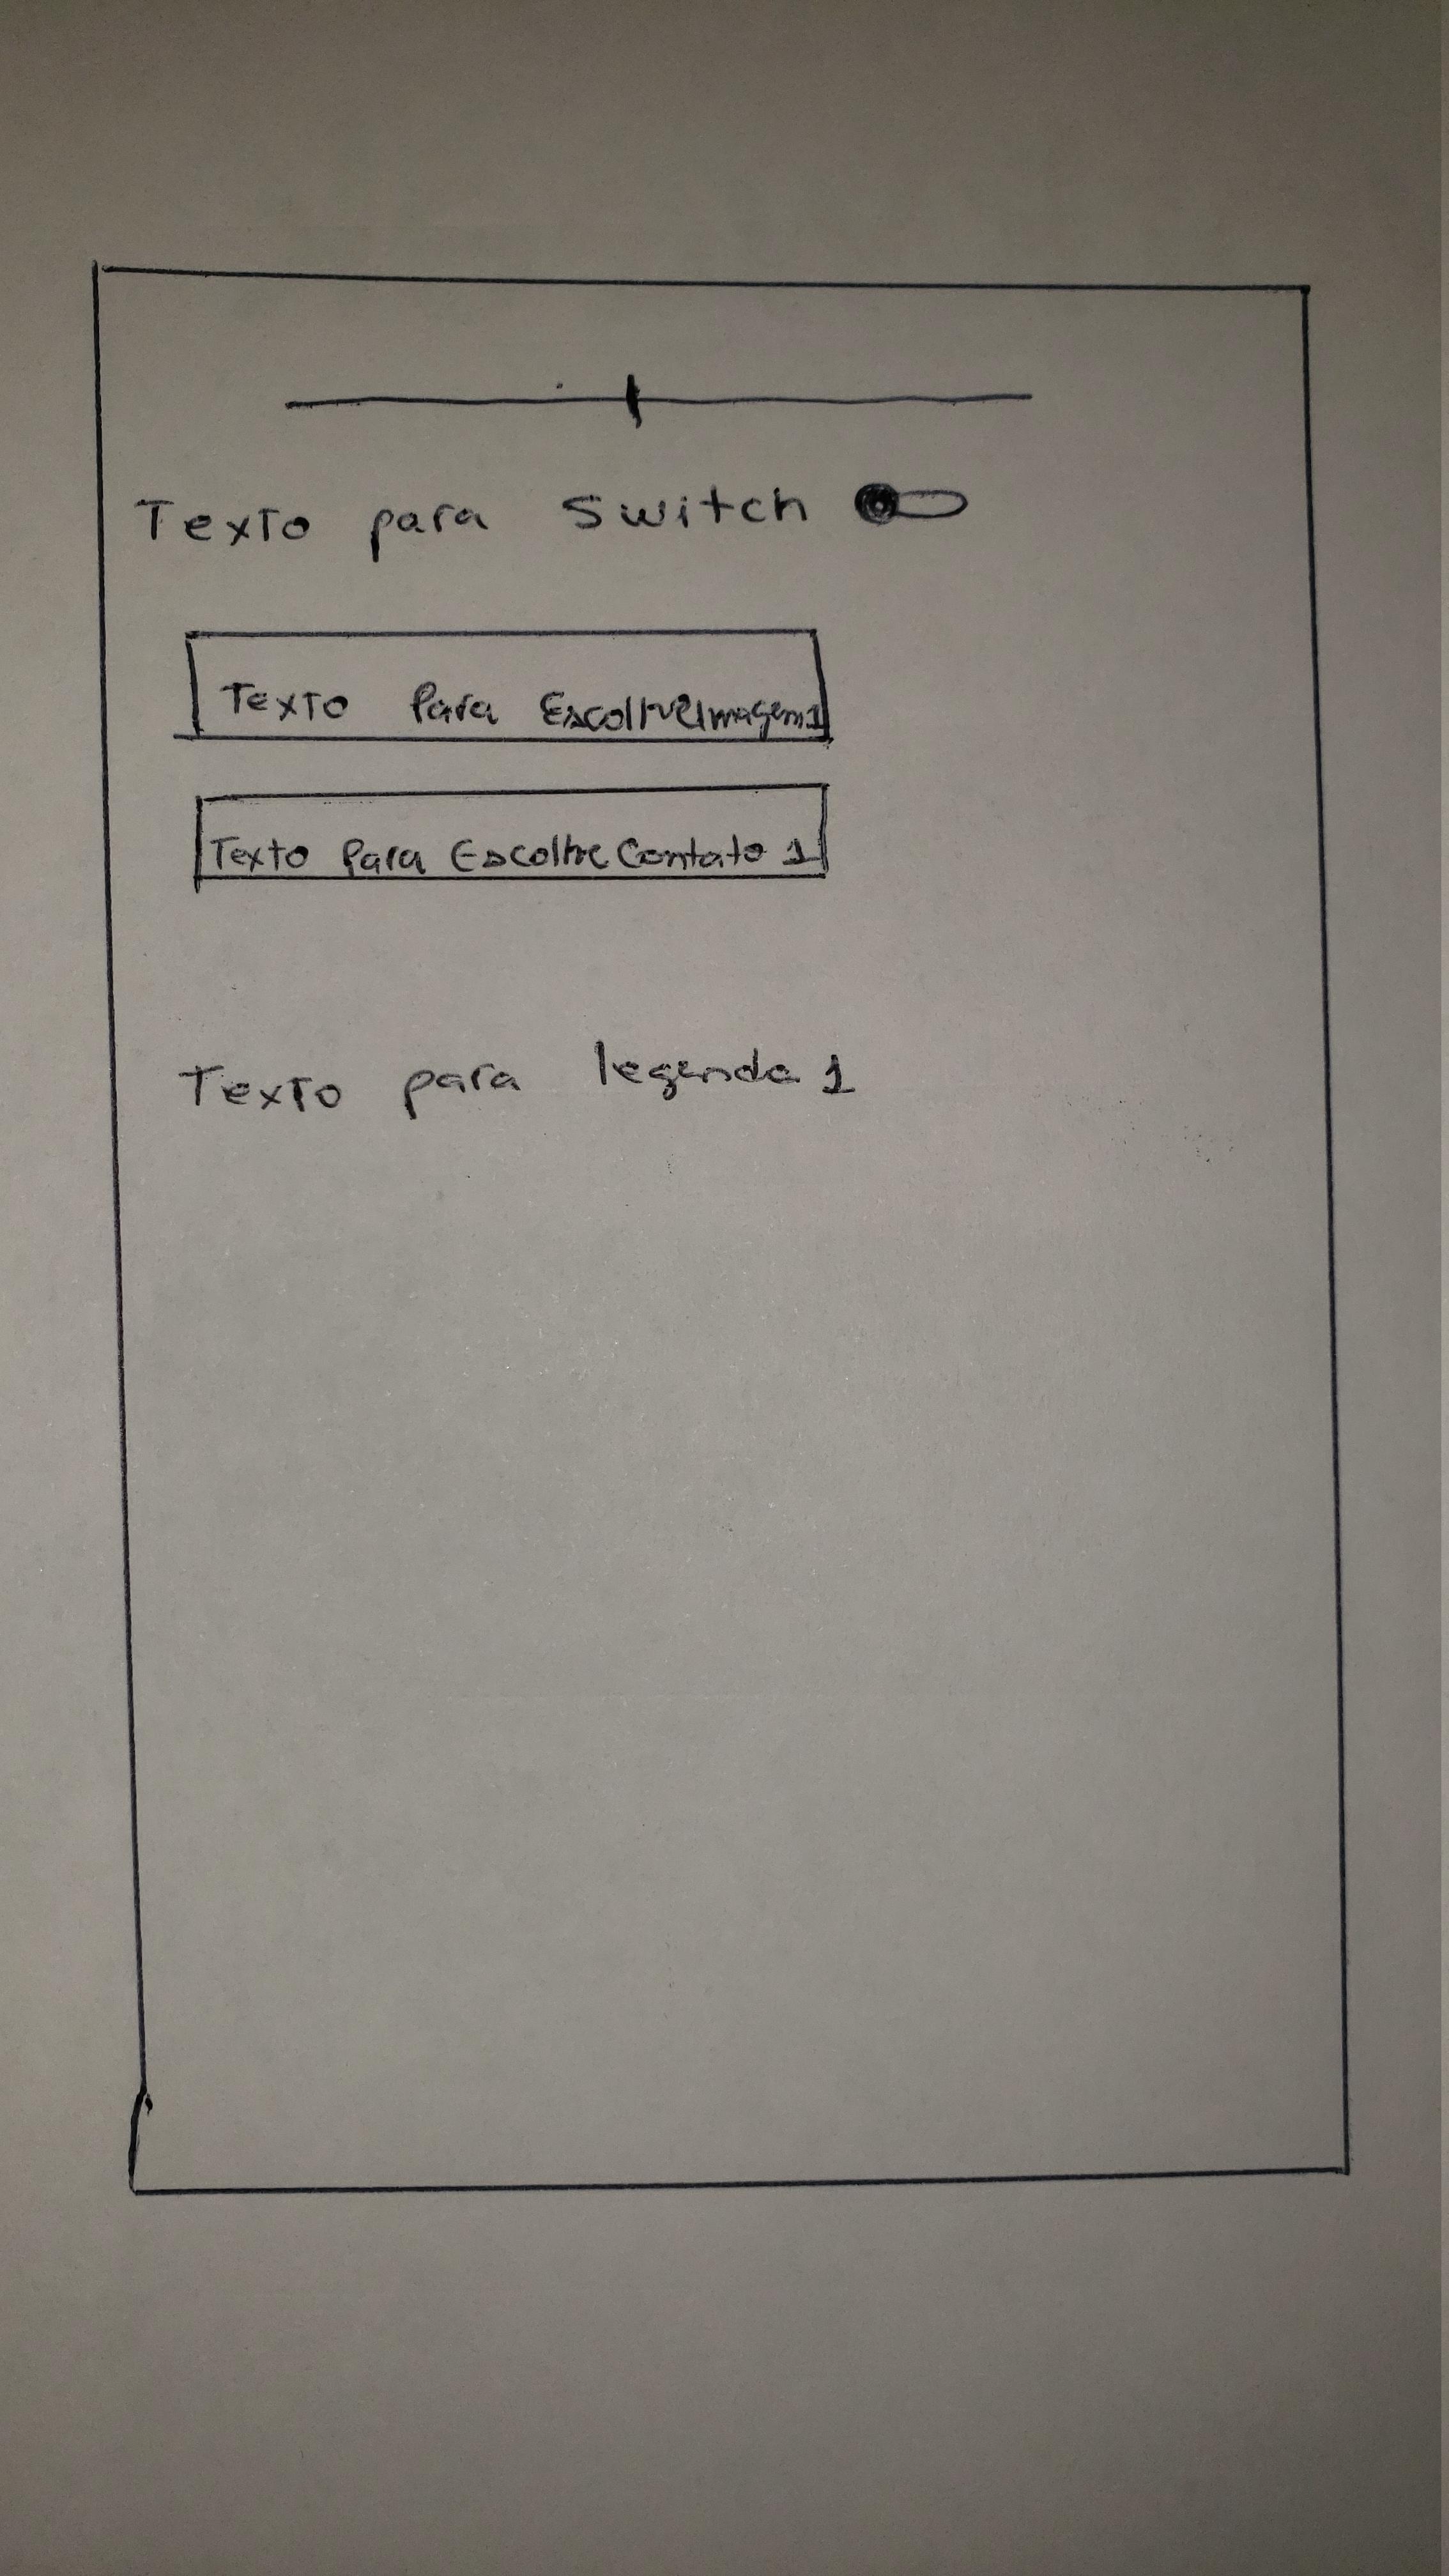 Texto para Switch
Texto Para EscolheImagem1
Texto Para EscolheContato 1
Texto para legenda 1